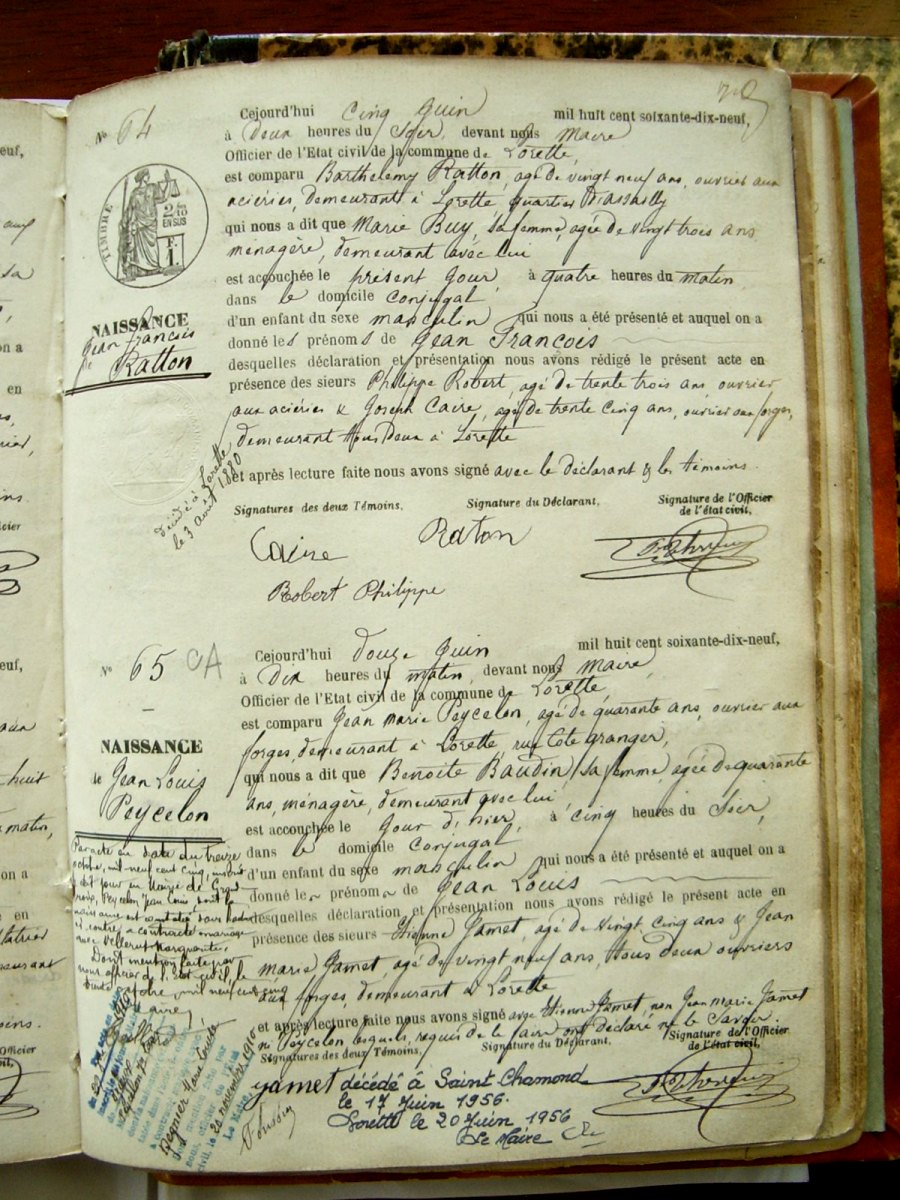 79
N° 64
Cejourd'hui cinq Juin mil huit cent soixante-dix-neuf,
à Deux heures du Soir, devant nous Maire
Officier de l'Etat civil de la commune de Lorette,
est comparu Barthélemy Ratton, agé de vingt neuf ans, ouvrier aux
aciéries, demeurant à Lorette quartier
qui nous a dit que Marie Buy, sa femme, agée de vingt trois ans
ménagère, demeurant avec lui
est accouchée le présent jour, à quatre heures du matin
dans le domicile conjugal
d'un enfant du sexe masculin qui nous a été présenté et auquel on a
donné les prénoms de Jean François
desquelles déclaration et présentation nous avons rédigé le présent acte en
présence des sieurs Philippe Robert, agé de trente trois ans ouvrier
aux aciéries & Joseph Caire, agé de trente cinq ans, ouvrier aux forges,
demeurant tous deux à Lorette
et après lecture faite nous avons signé avec le déclarant & les témoins.
TIMBRE
2/10 EN SUS
NAISSANCE
de Jean François
Ratton
décédé à Lorette
le 3 avril 1880
Signatures des deux Témoins, Signature du Déclarant, Signature de l'Officier
de l'état civil,
Caire Raton
Robert Philippe
N° 65 CA
Cejourd'hui douze Juin mil huit cent soixante-dix-neuf,
à Dix heures du matin, devant nous Maire
Officier de l'Etat civil de la commune de Lorette,
est comparu Jean Marie Peycelon, agé de quarante ans, ouvrier aux
forges, demeurant à Lorette, rue Côte granger,
qui nous a dit que Benoite Baudin, sa femme, agée de quarante
ans, ménagère, demeurant avec lui
est accouchée le jour d'hier, à cinq heures du Soir,
dans le domicile conjugal
d'un enfant du sexe masculin qui nous a été présenté et auquel on a
donné le prénom de Jean Louis
desquelles déclaration et présentation nous avons rédigé le présent acte en
présence des sieurs Etienne Jamet, agé de vingt cinq ans & Jean
marie Jamet, agé de vingt neuf ans, tous deux ouvriers
aux forges, demeurant à Lorette
et après lecture faite nous avons signé avec Etienne Jamet, non Jean marie Jamet
ni Peycelon lesquels, requis de le faire ont déclaré ne le savoir.
NAISSANCE
de Jean Louis
Peycelon
Par acte en date du treize
octobre, mil neuf cent cinq, inscrit
dit jour en Mairie de Grand
Croix, Peycelon Jean Louis dont la
naissance est constatée dans l'acte
ci contre, a contracté mariage
avec Villerut Marguerite
Dont mention faite par
nous officier de l'Etat civil, le
octobre mil neuf cent cinq
Le Maire,
Regnier Marie Louise
civil, le 20 novembre 1910
Le Maire
Signatures des deux Témoins, Signature du Déclarant, Signature de l'Officier
de l'état civil,
Jamet
décédé à Saint Chamond
le 17 Juin 1956.
Lorette le 20 Juin 1956
Le Maire